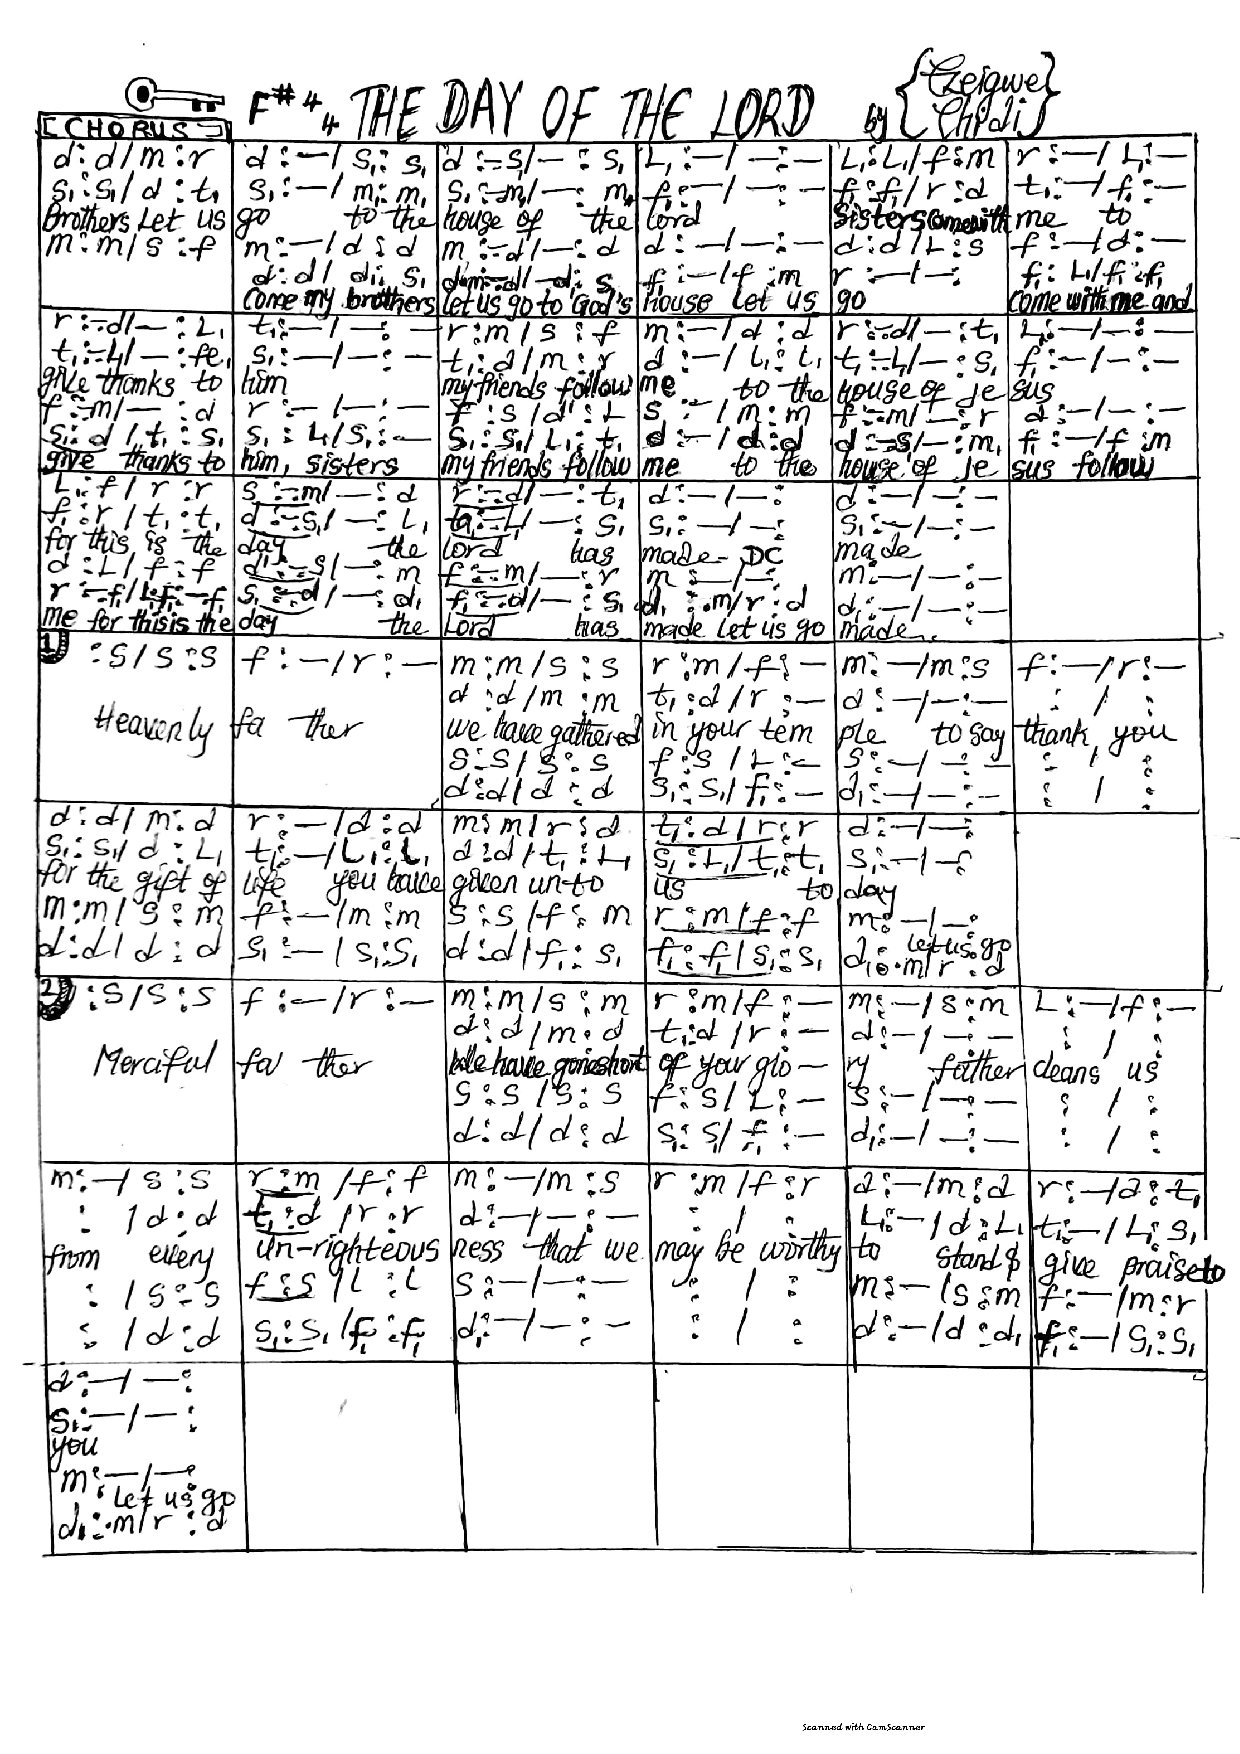 F# 4/4 THE DAY OF THE LORD by {Ezeigwe Chidi}
[CHORUS]
d:d/m:r d:—/s₁:s₁ d:–s₁/—:s₁ L₁:—/—:— L₁:L₁/f:m r:—/L₁:—
s₁:s₁/d:t₁ s₁:—/m₁:m₁ s₁:–m₁/—:m₁ f₁:—/—:— f₁:f₁/r:d t₁:—/f₁:—
Brothers Let us go to the house of the lord Sisters come with me to
m:m/s:f m:—/d:d m:–d/—:d d:—/—:— d:d/L:s f:—/d:—
come my brothers let us go to God's House let us go come with me and
r:–d/—:L₁ t₁:—/—:— r:m/s:f m:—/d:d r:–d/—:t₁ L₁:—/—:—
t₁:–L₁/—:fe₁ s₁:—/—:— t₁:d/m:r d:—/L₁:L₁ t₁:–L₁/—:s₁ f₁:—/—:—
give thanks to him my friends follow me to the house of Je sus
f:–m/—:d r:—/—:— f:s/d':L s:—/m:m f:–m/—:r d:—/—:—
s₁:d/t₁:s₁ s₁:L₁/s₁:— s₁:s₁/L₁:t₁ d:—/d:d d:–s₁/—:m₁ f₁:—/f:m
give thanks to him, sisters my friends follow me to the house of Je sus follow
L₁:f/r:r s:–m/—:d r:–d/—:t₁ d:—/—:— d:—/—:—
f₁:r/t₁:t₁ d:–s₁/—:L₁ ta₁:–L₁/—:s₁ s₁:—/—: s₁:—/—:—
for this is the day the lord has made- DC made
d:L/f:f d':–s/—:m f:–m/—:r m:—/—: m:—/—:—
me for this is the day the Lord has made let us go made
1) :s/s:s f:—/r:— m:m/s:s r:m/f:— m:—/m:s f:—/r:—
d:d/m:m t₁:d/r:— d:—/—:— : / :
Heavenly fa ther we have gathered in your tem ple to say thank you
s:s/s:s f:s/L:— s:—/—:— : / :
d:d/d:d s₁:s₁/f₁:— d₁:—/—:— : / :
d:d/m:d r:—/d:d m:m/r:d t₁:d/r:r d:—/—:
s₁:s₁/d:L₁ t₁:—/L₁:L₁ d:d/t₁:L₁ s₁:L₁/t₁:t₁ s₁:—/—:
for the gift of life you have given un-to us to day
m:m/s:m f:—/m:m s:s/f:m r:m/f:f m:—/—:
let us go
d:d/d:d s₁:—/s₁:s₁ d:d/f₁:s₁ f₁:f₁/s₁:s₁ d₁:.m/r:d
2) :s/s:s f:—/r:— m:m/s:m r:m/f:— m:—/s:m L:—/f:—
d:d/m:d t₁:d/r:— d:—/—:— : / :
Merciful fa ther We have gone short of your glo— ry father cleans us
s:s/s:s f:s/L:— s:—/—:— : / :
d:d/d:d s₁:s₁/f₁:— d₁:—/—:— : / :
m:—/s:s r:m/f:f m:—/m:s r:m/f:r d:—/m:d r:—/d:t₁
: /d:d t₁:d/r:r d:—/—:— : / : L₁:—/d:L₁ t₁:—/L₁:s₁
from every un-righteous ness that we may be worthy to stand & give praise to
: /s:s f:s/L:L s:—/—:— : / : m:—/s:m f:—/m:r
: /d:d s₁:s₁/f₁:f₁ d₁:—/—:— : / : d:—/d:d₁ f₁:—/s₁:s₁
d:—/—:
s₁:—/—:
you
m:—/—:
Let us go
d₁:.m/r:d
Scanned with CamScanner